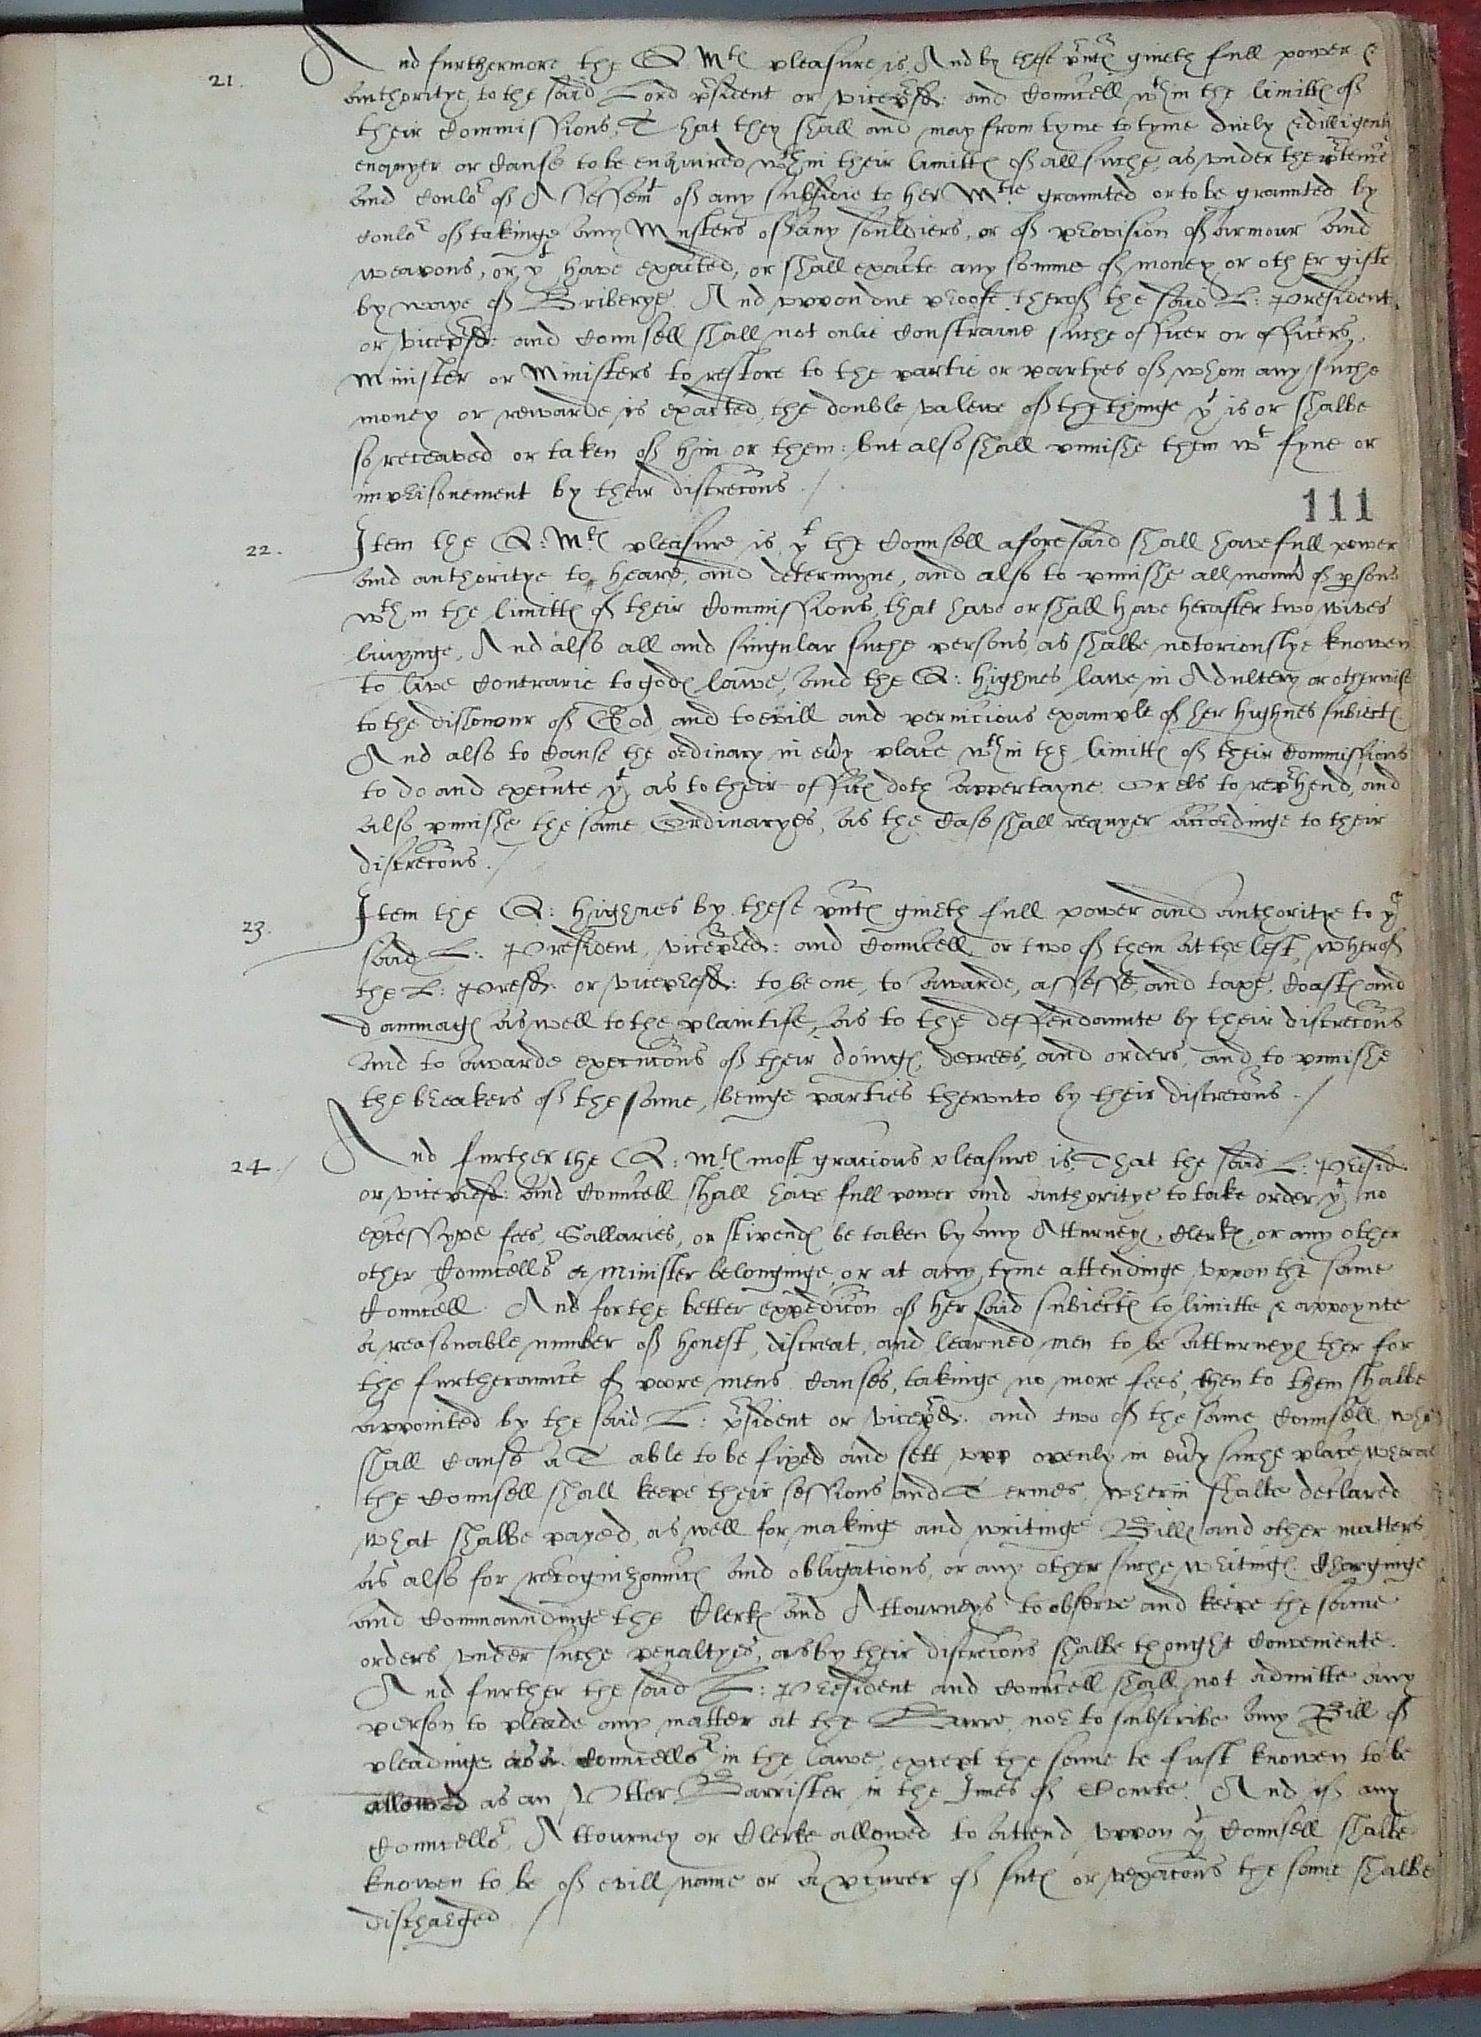 21. And furthermore the Q. Mtes pleasure is, And by these pnts giveth full power &
authoritye to the said Lord president or vicepsid: and Councell wthin the limittes of
their Commissions, That they shall and may from tyme to tyme duely & dilligently
enquyer or cause to be enquired wthin their limittes of all suche, as under the ptence
and coulor of Assessemt of any subsidie to her Mtie graunted or to be graunted by
coulor of takinge any Musters of any souldiers, or of provision of armour and
weapons, or yt have exacted, or shall exacte any somme of money or other gifte
by waye of Briberye. And uppon due proofe therof the said L: President,
or vicepsid: and Counsell shall not onlie constraine suche officer or officers,
Minister or Ministers to restore to the partie or partyes of whom any suche
money or rewarde is exacted, the double valewe of the thinge yt is or shalbe
so receaved or taken of him or them: but also shall punishe them wt fyne or
imprisonement by their discrecons ./
111
22. Item the Q: Mtes pleasure is yt the Counsell aforesaid shall have full power
and authoritye to heare, and determyne, and also to punishe all mannr of psons
wthin the limittes of their Commissions, that have or shall have herafter two wives
livynge, And also all and singular suche persons as shalbe notoriouslye knowen
to live contrarie to godes lawe, and the Q: highnes lawe in Adultery or otherwise
to the dishonour of God, and to evill and pernicious example of her highnes subiectes
And also to cause the ordinary in evy place wthin the limittes of their Commissions
to do and execute yt as to their offices doth appertayne. Or els to reprhend, and
also punishe the same Ordinaryes, as the case shall requyer accordinge to their
discrecons ./
23. Item the Q: highnes by these pnts giveth full power and authoritye to ye
said L: President, vicepresid: and Councell or two of them at the lest, wherof
the L: Presid: or vicepresid: to be one, to awarde, assesse, and taxe, Coastes and
dammages aswell to the plaintife, as to the deffendaunte by their discrecons
and to awarde execucons of their doinges, decrees, and orders, and to punishe
the breakers of the same, beinge parties therunto by their discrecons ./
24./ And further the Q: Mtes most gracious pleasure is, That the said L: Presid.
or vicepresid: and Councell shall have full power and authoritye to take order yt no
excessyve fees, Sallaries, or stipendes be taken by any Atturneyes, Clerkes, or any other
other Councellor or Minister belonginge, or at any tyme attendinge uppon the same
Councell. And for the better expedicon of her said subiectes to limitte & appoynte
a reasonable number of honest, discreat, and learned men to be atturneyes ther for
the furtheraunce of poore mens causes, takinge no more fees, then to them shalbe
appointed by the said L: psident or vicepd: and two of the same Counsell who
shall cause a Table to be fixed and sett upp openly in evy suche place, wheras
the Counsell shall keepe their sessions and Termes, wherin shalbe declared
what shalbe payed, as well for makinge and writinge Billes and other matters
as also for recognizaunces and obligations, or any other suche writinges. Charginge
and Commaundinge the Clerkes and Attourneys to observe and keepe the same
orders under suche penaltyes, as by their discrecons shalbe thought conveniente.
And further the said L: President and Councell shall not admitte any
person to pleade any matter at the Barre, nor to subscribe any Bill of
pleadinge as a Councellor in the lawe, except the same be first knowen to be
allowed as an Utter Barrister in the Innes of Courte. And if any
Councellor, Attourney or Clerke allowed to attend uppon ye Counsell shalbe
knowen to be of evill name or a pcurer of sutes or vexacons the same shalbe
discharged ./